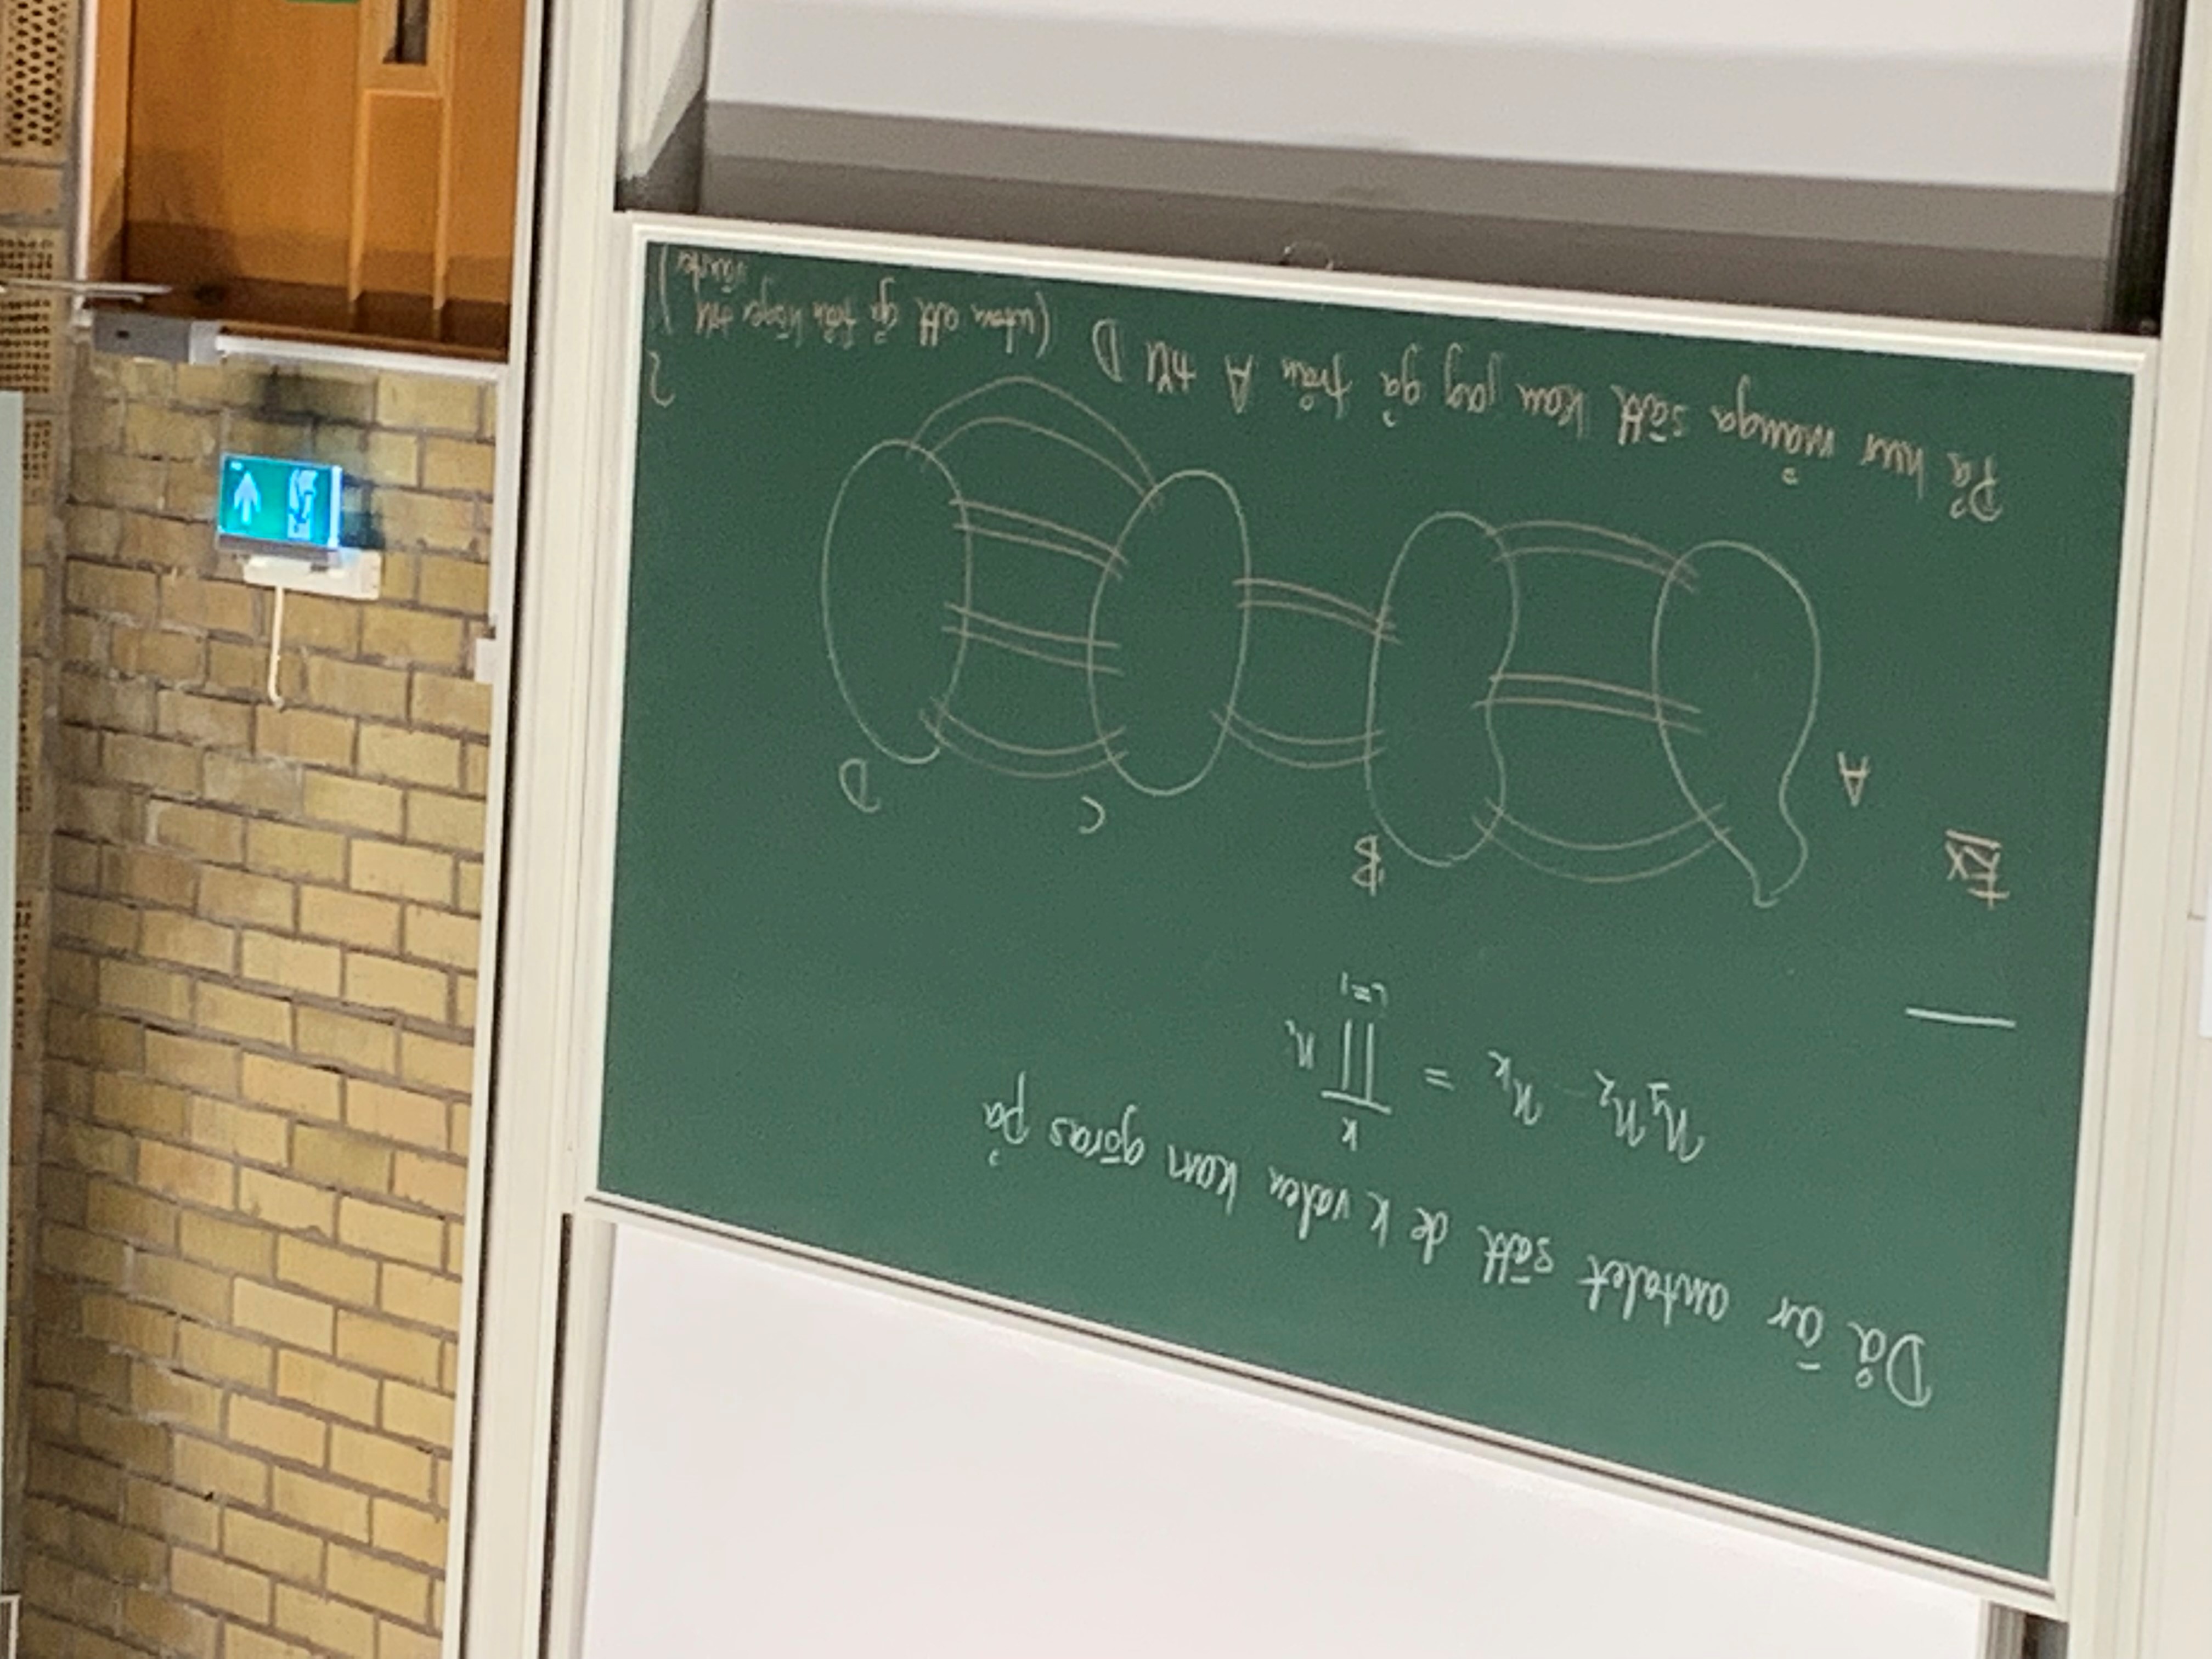 Då är antalet sätt de k valen kan göras på
n₁n₂ - n_k = ∏_{i=1}^{k} n_i
Ex
A B C D
På hur många sätt kan jag gå från A till D (utan att gå från höger till vänster)?